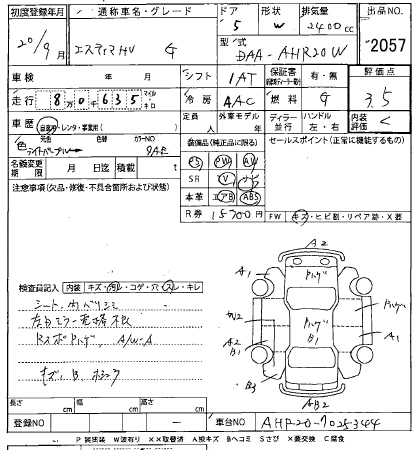 初度登録年月 通称車名・グレード ドア 形状 排気量 出品NO.
20/9月 エスティマHV G 5 W 2400cc 2057
型式 DAA-AHR20W
車検 年 月 シフト 1AT 保証書 有・無 評価点
走行 8万0千635 マイル キロ 冷房 AAC 燃料 G 3.5
車歴 自家用・レンタ・事業用( ) 定員 人 外車モデル 年 ディーラー 並行 ハンドル 左・右 内装評価 C
色 元色 色替 カラーNO
ライトパープル
装備品(純正品に限る) セールスポイント(正常に機能するもの)
名義変更期限 月 日迄 積載 t
PS PW AW
SR V ナビ
本革 エアB ABS
R券 15700円
注意事項(欠品・修復・不具合箇所および状態)
FW キズ・ヒビ割・リペア跡・X要
検査員記入 内装 キズ・汚レ・コゲ・穴・スレ・キレ
シート、内ハリシミ
A/W-A
キズ、B
A2
A1
ハゲ
A2
B1
B1
A1
B3
AB2
長さ cm 幅 cm 高さ cm
登録NO - 車台NO AHR20-7025344
P 要塗装 W波有り XX取替済 A線キズ Bヘコミ Sさび X要交換 C腐食